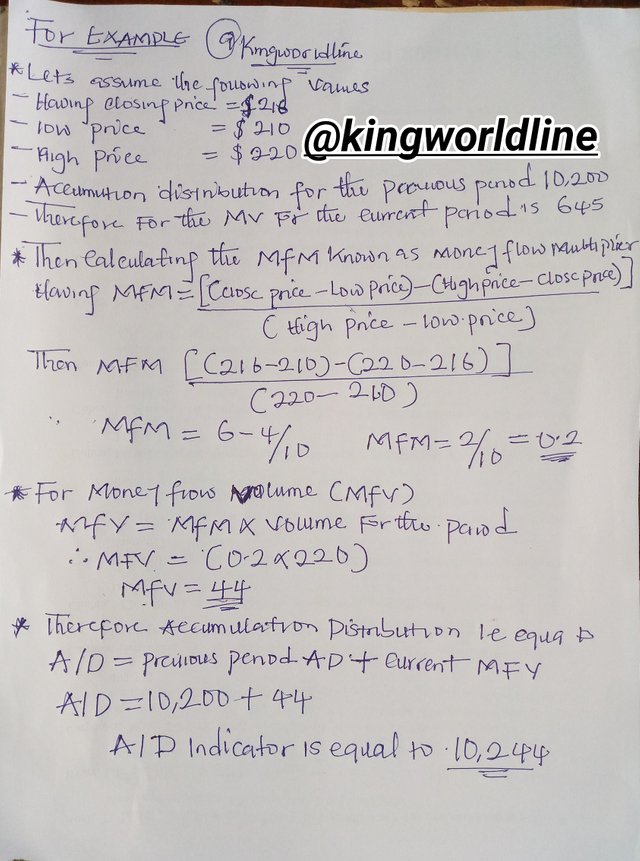 For EXAMPLE @Kingworldline
* Lets assume the following values
- Having closing price = $216
- low price = $210
- High price = $220 @kingworldline
- Accumution distribution for the previous period 10,200
- Therefore For the MV For the current period is 645
* Then Calculating the MFM known as Money flow Multiplier
Having MFM = [(close price - Low price) - (High price - close price)]
(High price - low price]
Then MFM [(216-210)-(220-216)]
(220-210)
∴ MFM = 6-4/10 MFM = 2/10 = 0.2
* For Money flow Volume (MFV)
MFV = MFM X Volume For the period
∴ MFV = (0.2 x 220)
MFV = 44
* Therefore Accumulation Distribution ie equa to
A/D = previous period AD + current MFV
A/D = 10,200 + 44
A/D Indicator is equal to 10,244